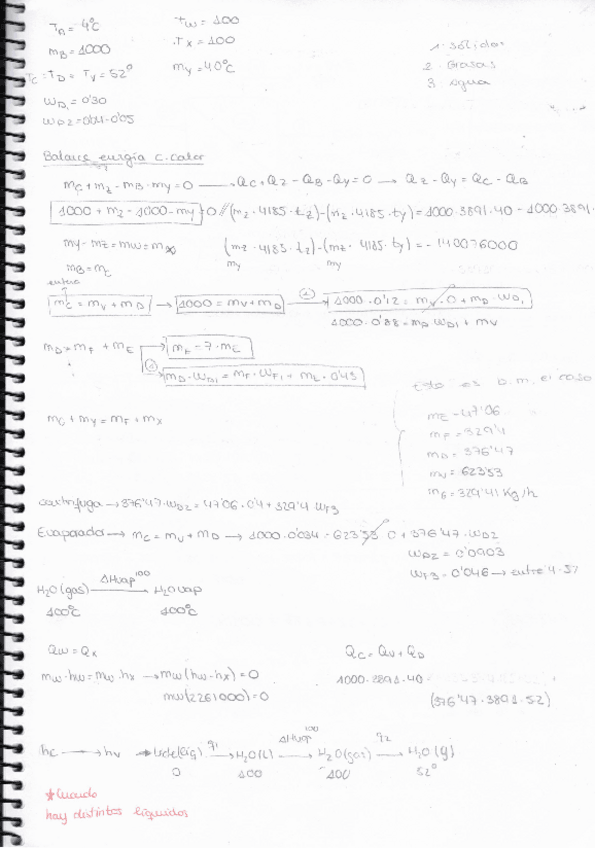 T_B = 4°C
T_W = 100
m_B = 1000
T_X = 100
T_C = T_D = T_V = 52°
m_Y = 40°C
W_D1 = 0'30
W_D2 = 0'04-0'05
1. Sólidos
2. Grasas
3. Agua
Balance energía c. calor
m_C + m_Z - m_B - m_Y = 0 → Q_C + Q_Z - Q_B - Q_Y = 0 → Q_Z - Q_Y = Q_C - Q_B
1000 + m_Z - 1000 - m_Y = 0 // (m_Z · 4185 · t_Z) - (m_Z · 4185 · t_Y) = 1000 · 3891 · 40 - 1000 · 3891 ·
m_Y - m_Z = m_W = m_X
(m_Z · 4185 · t_Z) - (m_Z · 4185 · t_Y) = - 140076000
m_Y m_Y
m_B = m_C
entera
m_C = m_V + m_D → 1000 = m_V + m_D → ① 1000 · 0'12 = m_V · 0 + m_D · W_D1
1000 · 0'88 = m_D W_D1 + m_V
m_D = m_F + m_E
m_F = 7 · m_E
① m_D · W_D1 = m_F · W_F1 + m_E · 0'43
m_C + m_Y = m_F + m_X
m_E = 47'06
m_F = 329'4
m_D = 376'47
m_V = 623'53
m_G = 329'41 Kg/h
centrífuga → 376'47 · W_D2 = 47'06 · 0'4 + 329'4 W_F3
Evaporador → m_C = m_V + m_D → 1000 · 0'034 = 623'53 · 0 + 376'47 · W_D2
W_D2 = 0'0903
W_F3 = 0'046 → entre 4-5%
ΔHvap 100
H2O (gas) → H2O vap
100°C 100°C
Q_W = Q_X
Q_C = Q_V + Q_D
m_W · h_W = m_W · h_X → m_W (h_W - h_X) = 0
1000 · 3891 · 40 -
m_W (2261000) = 0
(376'47 · 3891 · 52)
ΔHvap 100
h_C → h_V * leche (liq) q1 → H2O (l) → H2O (gas) q2 → H2O (g)
0 100 100 52°
* Cuando
hay distintos líquidos